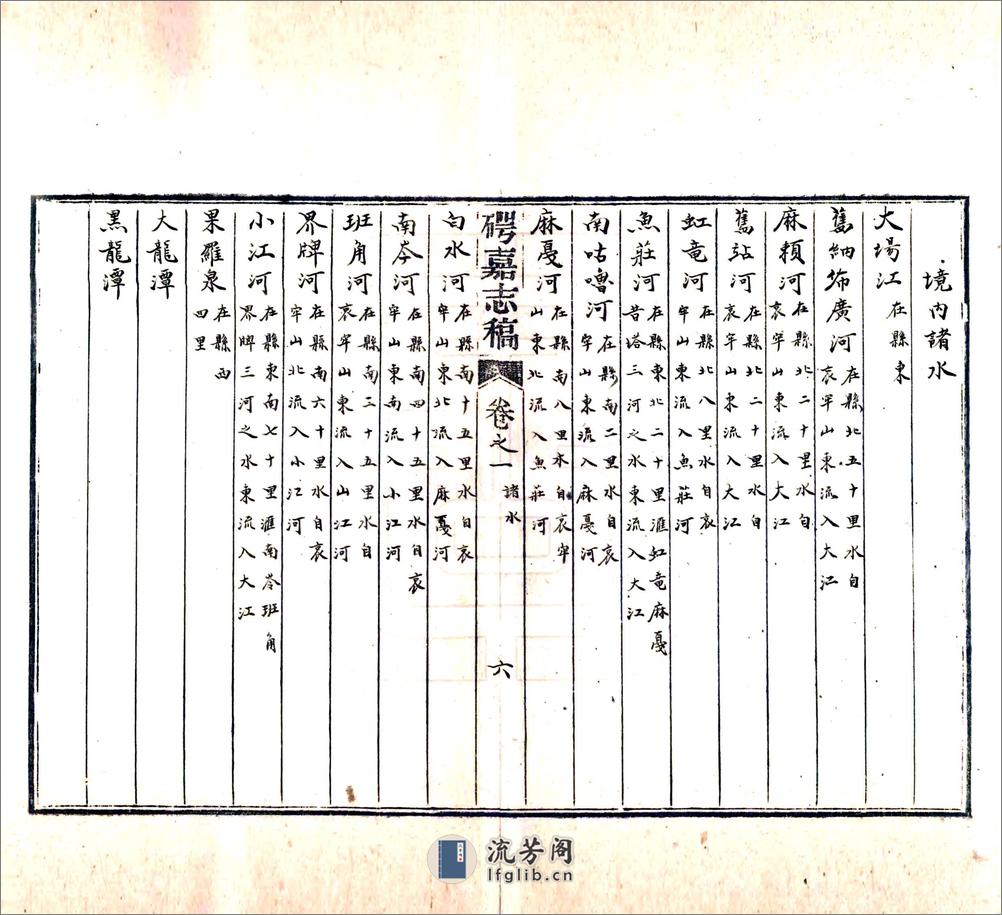 境内諸水
大場江 在縣東
舊納笧廣河 在縣北五十里水自哀牢山東流入大江
麻賴河 在縣北二十里水自哀牢山東流入大江
舊站河 在縣北二十里水自哀牢山東流入大江
虹竜河 在縣北八里水自哀牢山東流入魚莊河
魚莊河 在縣東北二十里滙虹竜麻戞昔塔三河之水東流入大江
南咕嚕河 在縣南二里水自哀牢山東流入麻戞河
麻戞河 在縣南八里水自哀牢山東北流入魚莊河
碍嘉志稿 卷之一 諸水 六
白水河 在縣南十五里水自哀牢山東北流入麻戞河
南岺河 在縣南四十五里水自哀牢山東南流入小江河
班角河 在縣南三十五里水自哀牢山東流入山江河
界牌河 在縣南六十里水自哀牢山北流入小江河
小江河 在縣東南七十里滙南岺班角界牌三河之水東流入大江
果羅泉 在縣西四里
大龍潭
黑龍潭
流芳阁
lfglib.cn